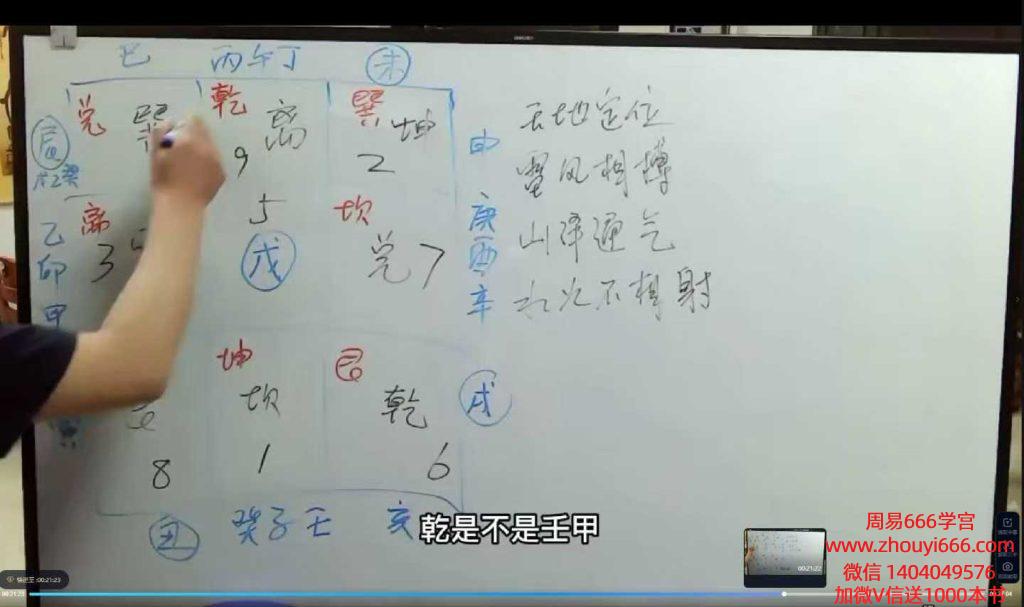 巳 丙午丁 未
兑 巽 乾 离 巽 坤
辰 9 2 申
乙 离 5 坎 庚
卯 3 戊 兑 7 酉
甲 辛
坤 艮
坎 乾 戌
8 1 6
丑 癸子壬 亥
天地定位
雷风相搏
山泽通气
水火不相射
乾是不是壬甲
快进至:00:21:23
00:21:23
00:21:22
周易666学宫
www.zhouyi666.com
微信 1404049576
加微V信送1000本书